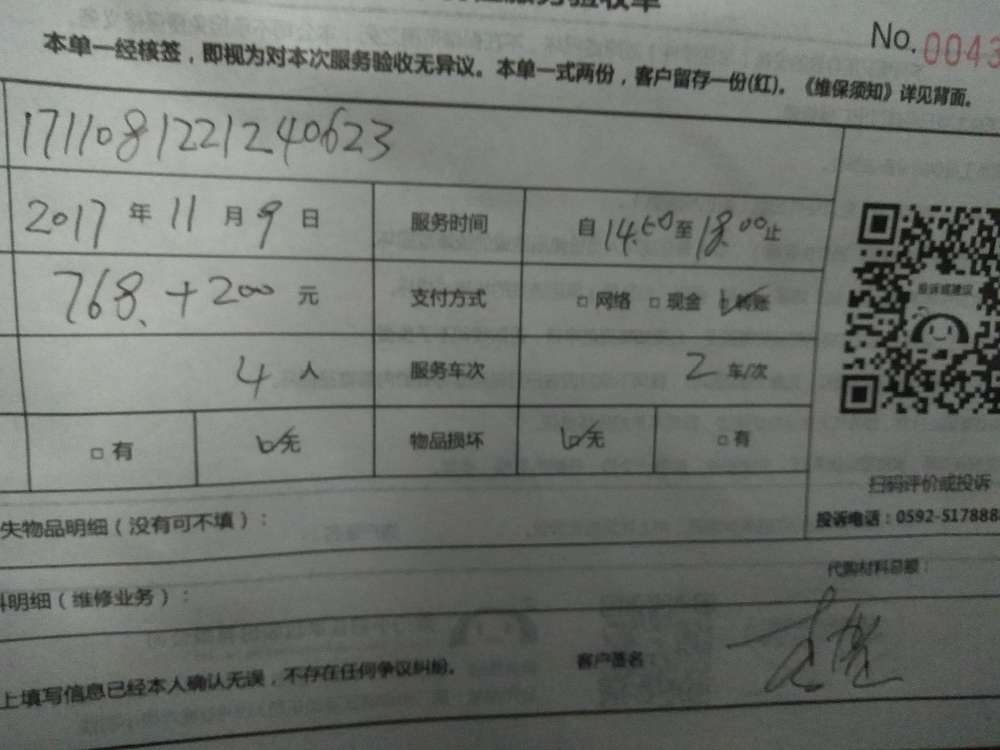 服务验收单
No. 0043
本单一经核签，即视为对本次服务验收无异议。本单一式两份，客户留存一份(红)。《维保须知》详见背面。
1711081221240623
2017 年 11 月 9 日 服务时间 自 14.00 至 18.00 止
768. + 200 元 支付方式 □ 网络 □ 现金 转账
投诉或建议
4 人 服务车次 2 车/次
□ 有 无 物品损坏 无 □ 有
扫码评价或投诉
失物品明细（没有可不填）：
投诉电话：0592-517888
代购材料总额：
料明细（维修业务）：
上填写信息已经本人确认无误，不存在任何争议纠纷。 客户签名：